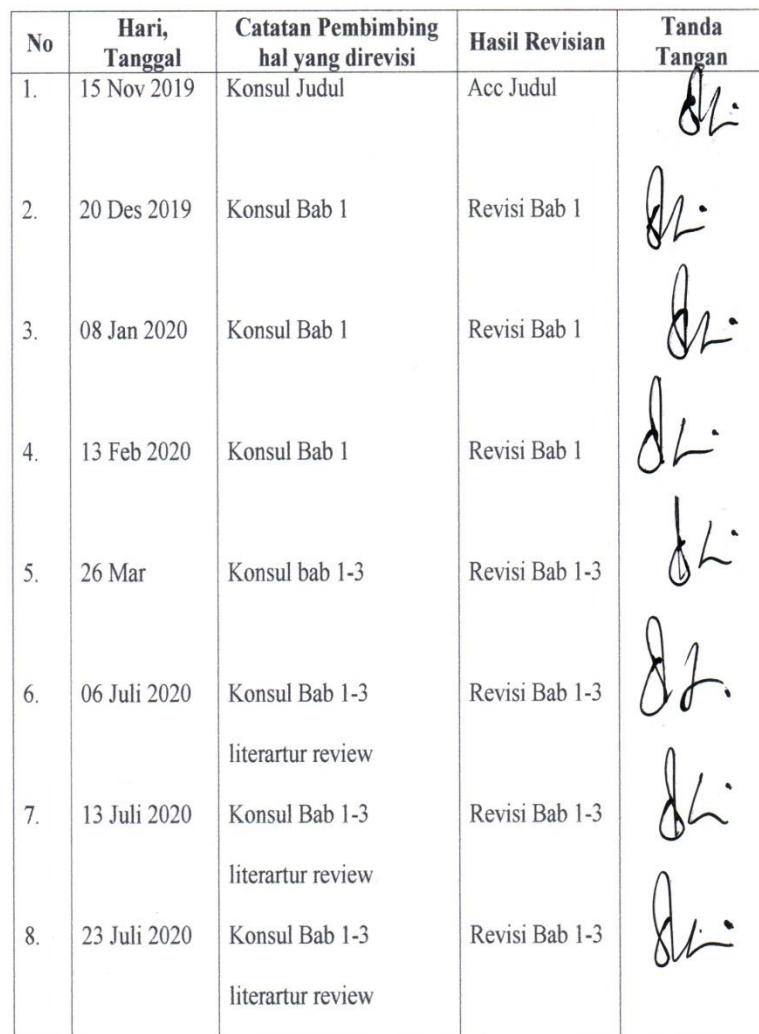 No Hari, Tanggal Catatan Pembimbing hal yang direvisi Hasil Revisian Tanda Tangan
1. 15 Nov 2019 Konsul Judul Acc Judul
2. 20 Des 2019 Konsul Bab 1 Revisi Bab 1
3. 08 Jan 2020 Konsul Bab 1 Revisi Bab 1
4. 13 Feb 2020 Konsul Bab 1 Revisi Bab 1
5. 26 Mar Konsul bab 1-3 Revisi Bab 1-3
6. 06 Juli 2020 Konsul Bab 1-3 Revisi Bab 1-3
literartur review
7. 13 Juli 2020 Konsul Bab 1-3 Revisi Bab 1-3
literartur review
8. 23 Juli 2020 Konsul Bab 1-3 Revisi Bab 1-3
literartur review